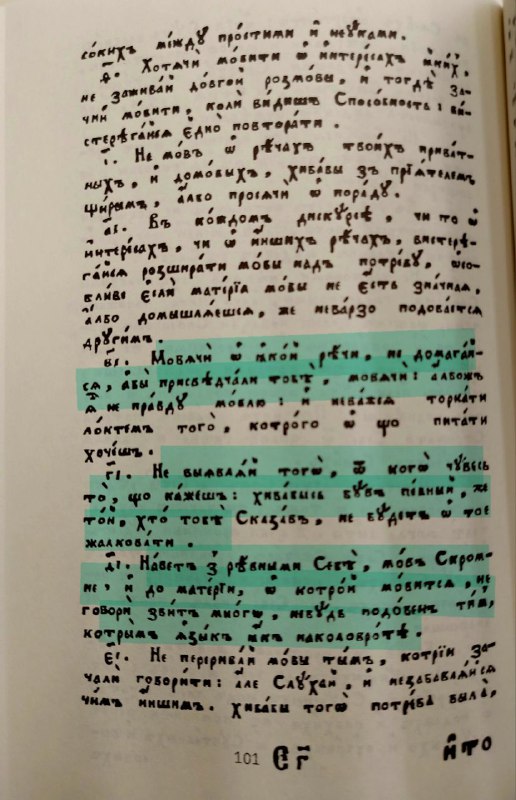 со́кихъ ме́ждꙋ про́стими и҆ неꙋ́ками.
ѳ҃. Хотѧ́чи мо́вити ѡ҆ и҆нтере́сахъ и҆́нихъ,
не зажива́й до́вгой розмо́вы, и҆ тогдѣ̀ за-
чнѝ мо́вити, колѝ ви́дишъ Спосо́бность: ви-
стерѣга́йсѧ є҆днѡ̀ повтора́ти.
і҃. Не мо́въ ѡ҆ рѣ́чахъ твои́хъ прива́т-
ныхъ, и҆ домо́выхъ, хиба́вы зъ прїѧ́телемъ
щи́рымъ, а҆́лбо просѧ́чи ѡ҆ пора́дꙋ.
а҃і. Въ ко́ждомъ дискꙋ́рсѣ, чи то ѡ҆
и҆нтере́сахъ, чи ѡ҆ и҆́ншихъ рѣ́чахъ, вистерѣ-
га́йсѧ розшира́ти мо́вы надъ потре́бꙋ, ѡ҆со-
бли́ве є҆слѝ мате́рїѧ мо́вы не є҆́сть зна́чнаѧ,
а҆́лбо домышлѧ́ешсѧ, же нева́рзо подоба́етсѧ
дрꙋги́мъ.
в҃і. Мовѧ́чи ѡ҆ ꙗ҆ко́й рѣ́чи, не домага́й-
сѧ, а҆бы̀ присвѣдча́ли тобѣ̀, мовѧ́чи: а҆лбо́жъ
ѧ҆̀ не пра́вдꙋ мо́влю: и҆ нева́жсѧ торка́ти
ло́ктемъ того̀, котро́го ѡ҆ що пита́ти
хо́чешъ.
г҃і. Не выѧвлѧ́й тогѡ̀, ѿ когѡ̀ чꙋ́весь
то̀, що ка́жешъ: хиба́бысь бꙋвъ пе́вный, же
то́й, хто̀ тобѣ̀ Сказа́въ, не бꙋ́детъ ѡ҆ тое
жалкова́ти.
д҃і. На́ветъ з̾ рѣ́вными Себѣ̀, мо́въ Скро́м-
не, и҆ до мате́рїи, ѡ҆ котро́й мо́витсѧ, не
говорѝ збитъ мно́гѡ, небꙋ́дь подо́бенъ ти́мъ,
котры́мъ ѧ҆зы́къ ꙗ҆́къ наколовро́тѣ.
є҃і. Не перерива́й мо́вы ты́мъ, котрїи за-
ча́ли говори́ти: але Слꙋ́хай, и҆ незабавлѧ́йсѧ
чи́мъ и҆́ншимъ. хиба́бы тогѡ̀ потре́ба была̀,
101 С҃г
и҆ то